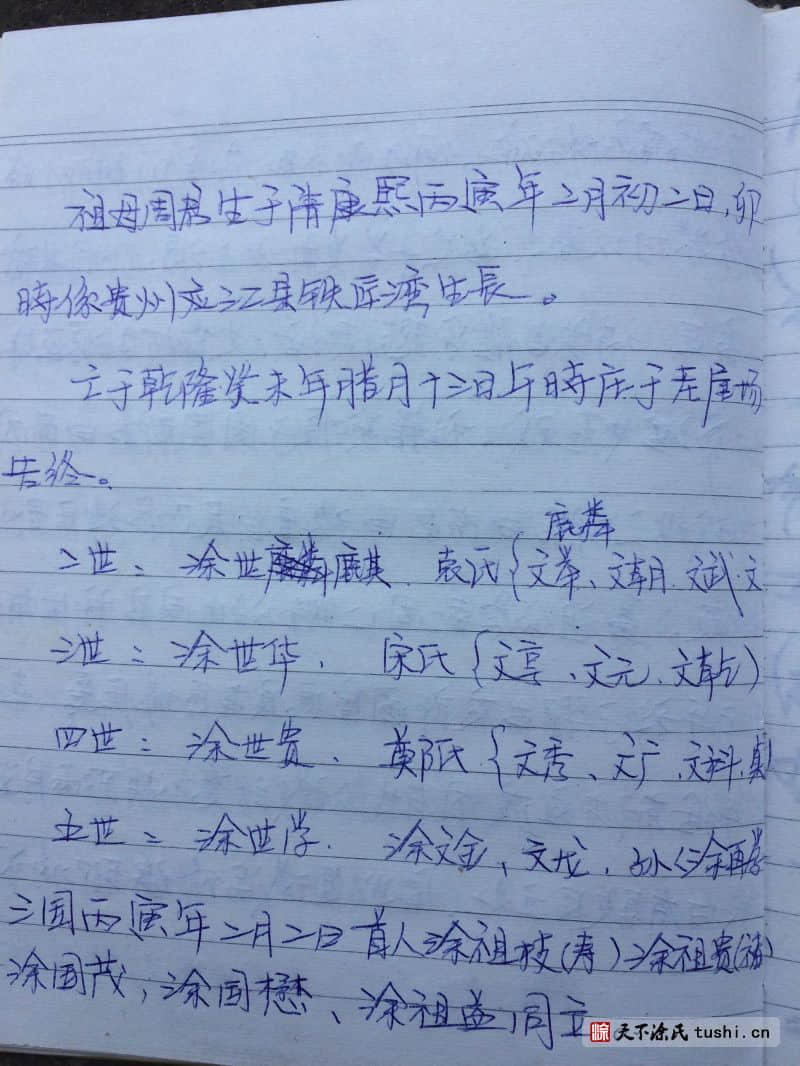 祖母周君生于清康熙丙寅年二月初二日,卯
時係贵州应江县铁匠湾生長。
亡于乾隆癸未年腊月十三日午時庄于老庙场
告终。
麒麟
二世: 涂世麒. 袁氏{文举、文朝.文武.文
三世: 涂世华. 宋氏{文享、文元、文乾)
四世: 涂世贵. 莫邓氏{文秀、文广.文科.
五世: 涂世学. 涂文金、文龙,
三国丙寅年二月二日首人涂祖枝(寿)涂祖贵(福)
涂国茂,涂国懋、涂祖益,同立
涂 天下涂氏 tushi.cn